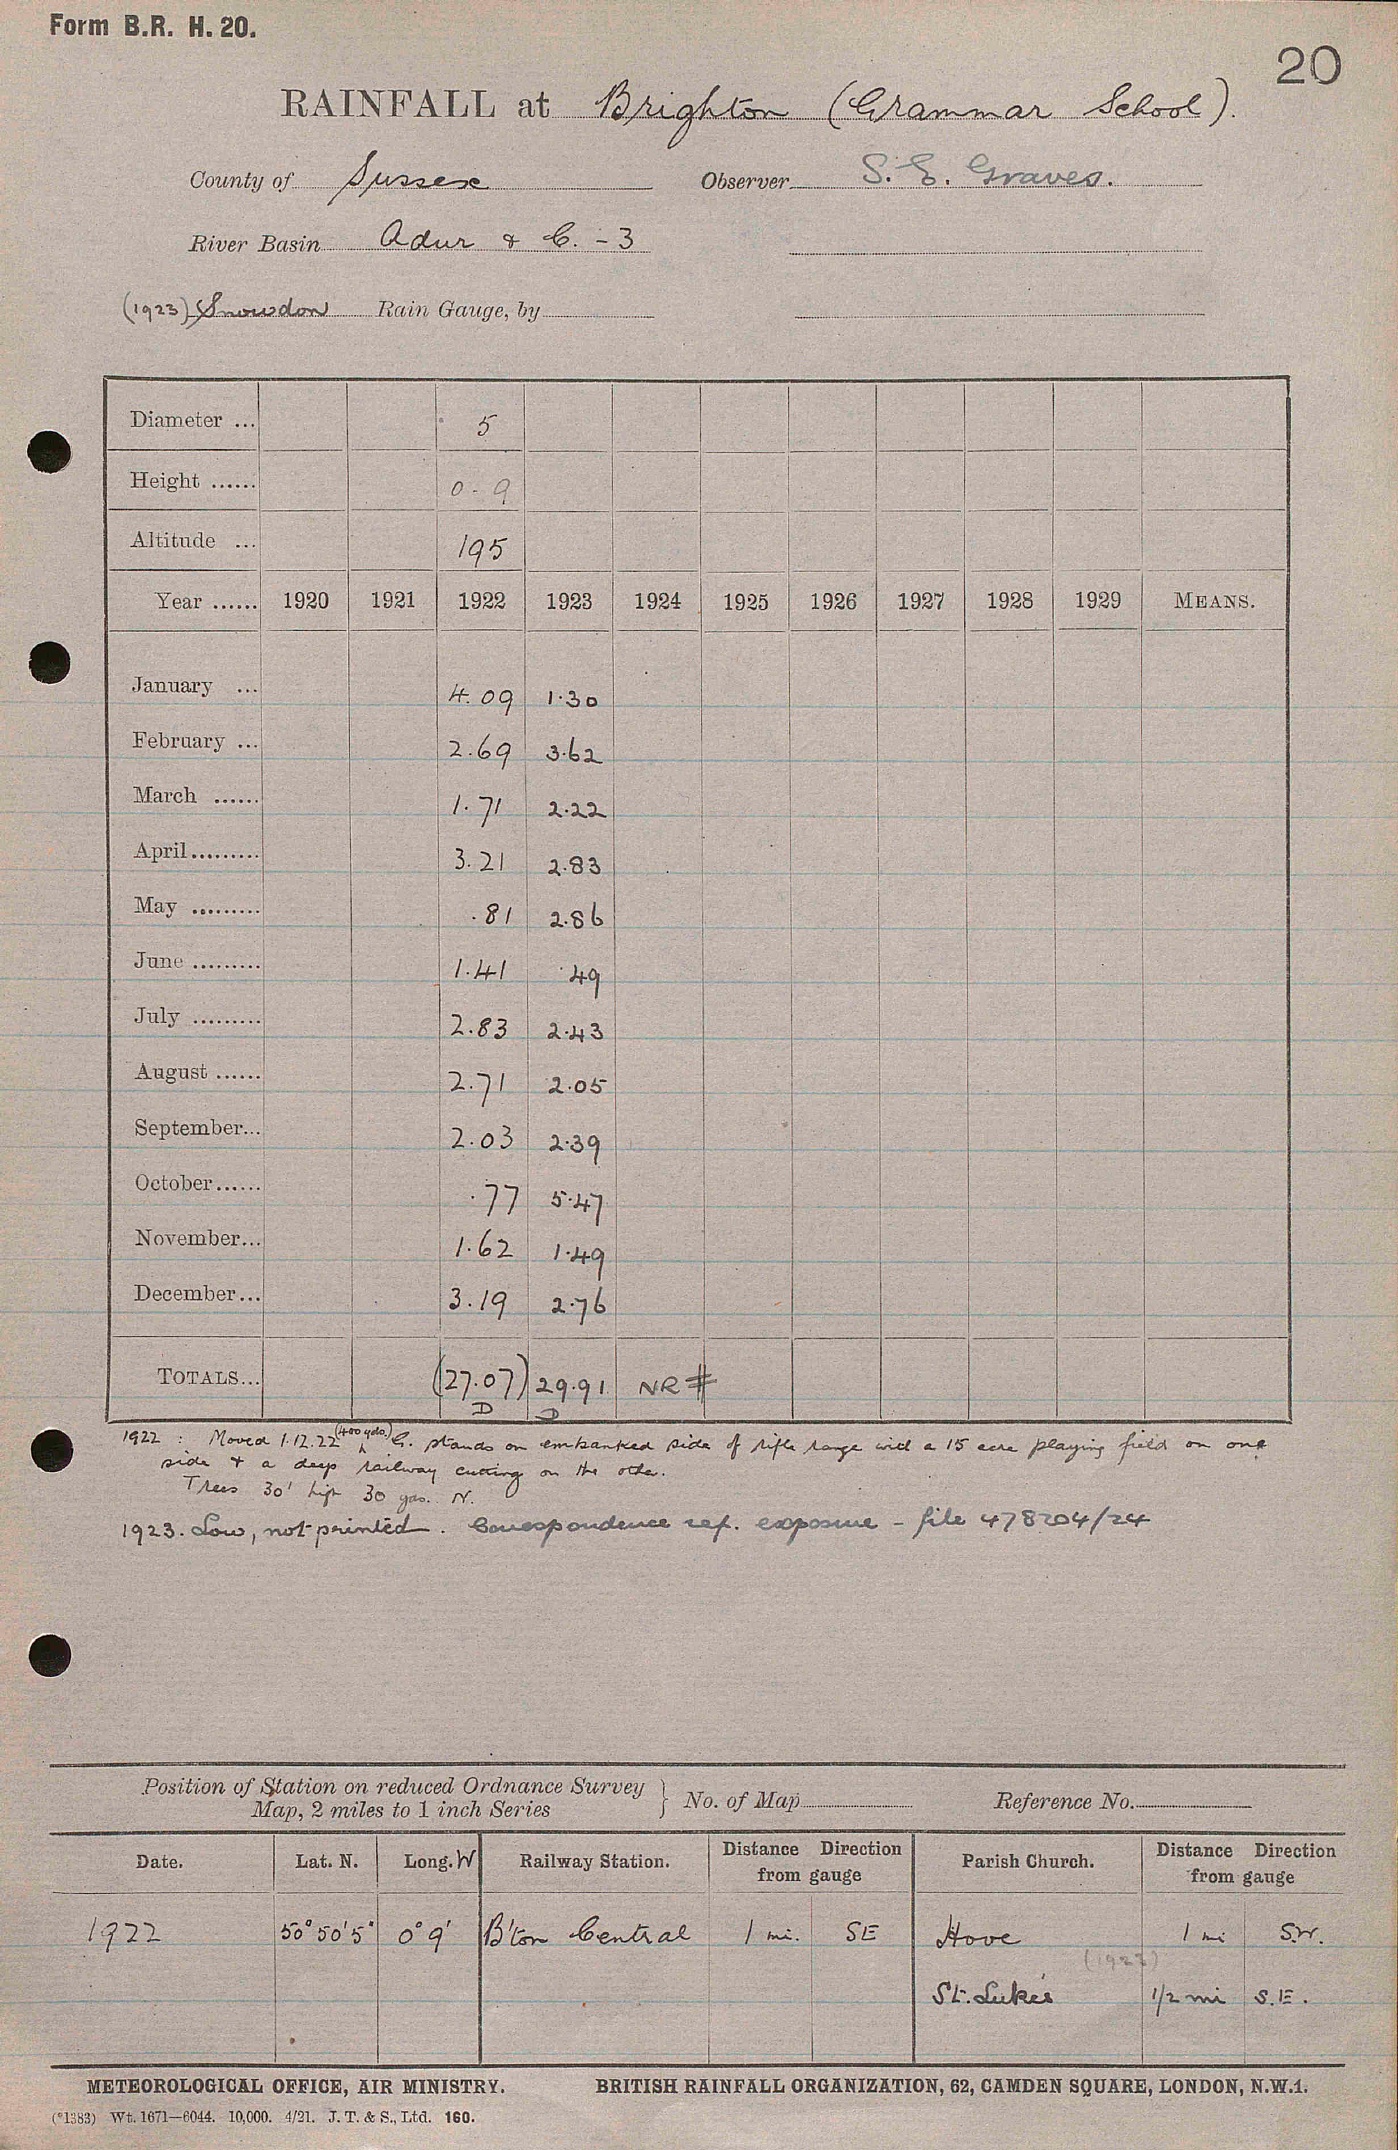 Form B.R. H. 20.
20
RAINFALL at Brighton (Grammar School).
County of Sussex Observer S. E. Graves.
River Basin Adur & C. - 3
(1923) Snowdon Rain Gauge, by
Diameter ... 5
Height ...... 0 - 9
Altitude ... 195
Year ...... 1920 1921 1922 1923 1924 1925 1926 1927 1928 1929 MEANS.
January ... 4.09 1.30
February ... 2.69 3.62
March ...... 1.71 2.22
April ......... 3.21 2.83
May ......... .81 2.86
June ......... 1.41 .49
July ......... 2.83 2.43
August ...... 2.71 2.05
September... 2.03 2.39
October ...... .77 5.47
November... 1.62 1.49
December... 3.19 2.76
TOTALS... (27.07) 29.91 NR #
D D
1922 : Moved 1.12.22 (400 yds.) G. stands on embanked side of rifle range with a 15 acre playing field on one
side & a deep railway cutting on the other.
Trees 30' high 30 yds. N.
1923. Low, not printed. Correspondence ref. exposure - file 478204/24
Position of Station on reduced Ordnance Survey
Map, 2 miles to 1 inch Series } No. of Map Reference No.
Date. Lat. N. Long. W Railway Station. Distance Direction from gauge Parish Church. Distance Direction from gauge
1922 50° 50' 5" 0° 9' B'ton Central 1 mi. SE Hove 1 mi S.W.
(1923)
St. Luke's 1/2 mi S.E.
METEOROLOGICAL OFFICE, AIR MINISTRY. BRITISH RAINFALL ORGANIZATION, 62, CAMDEN SQUARE, LONDON, N.W.1.
(*1383) Wt. 1671—6044. 10,000. 4/21. J. T. & S., Ltd. 160.